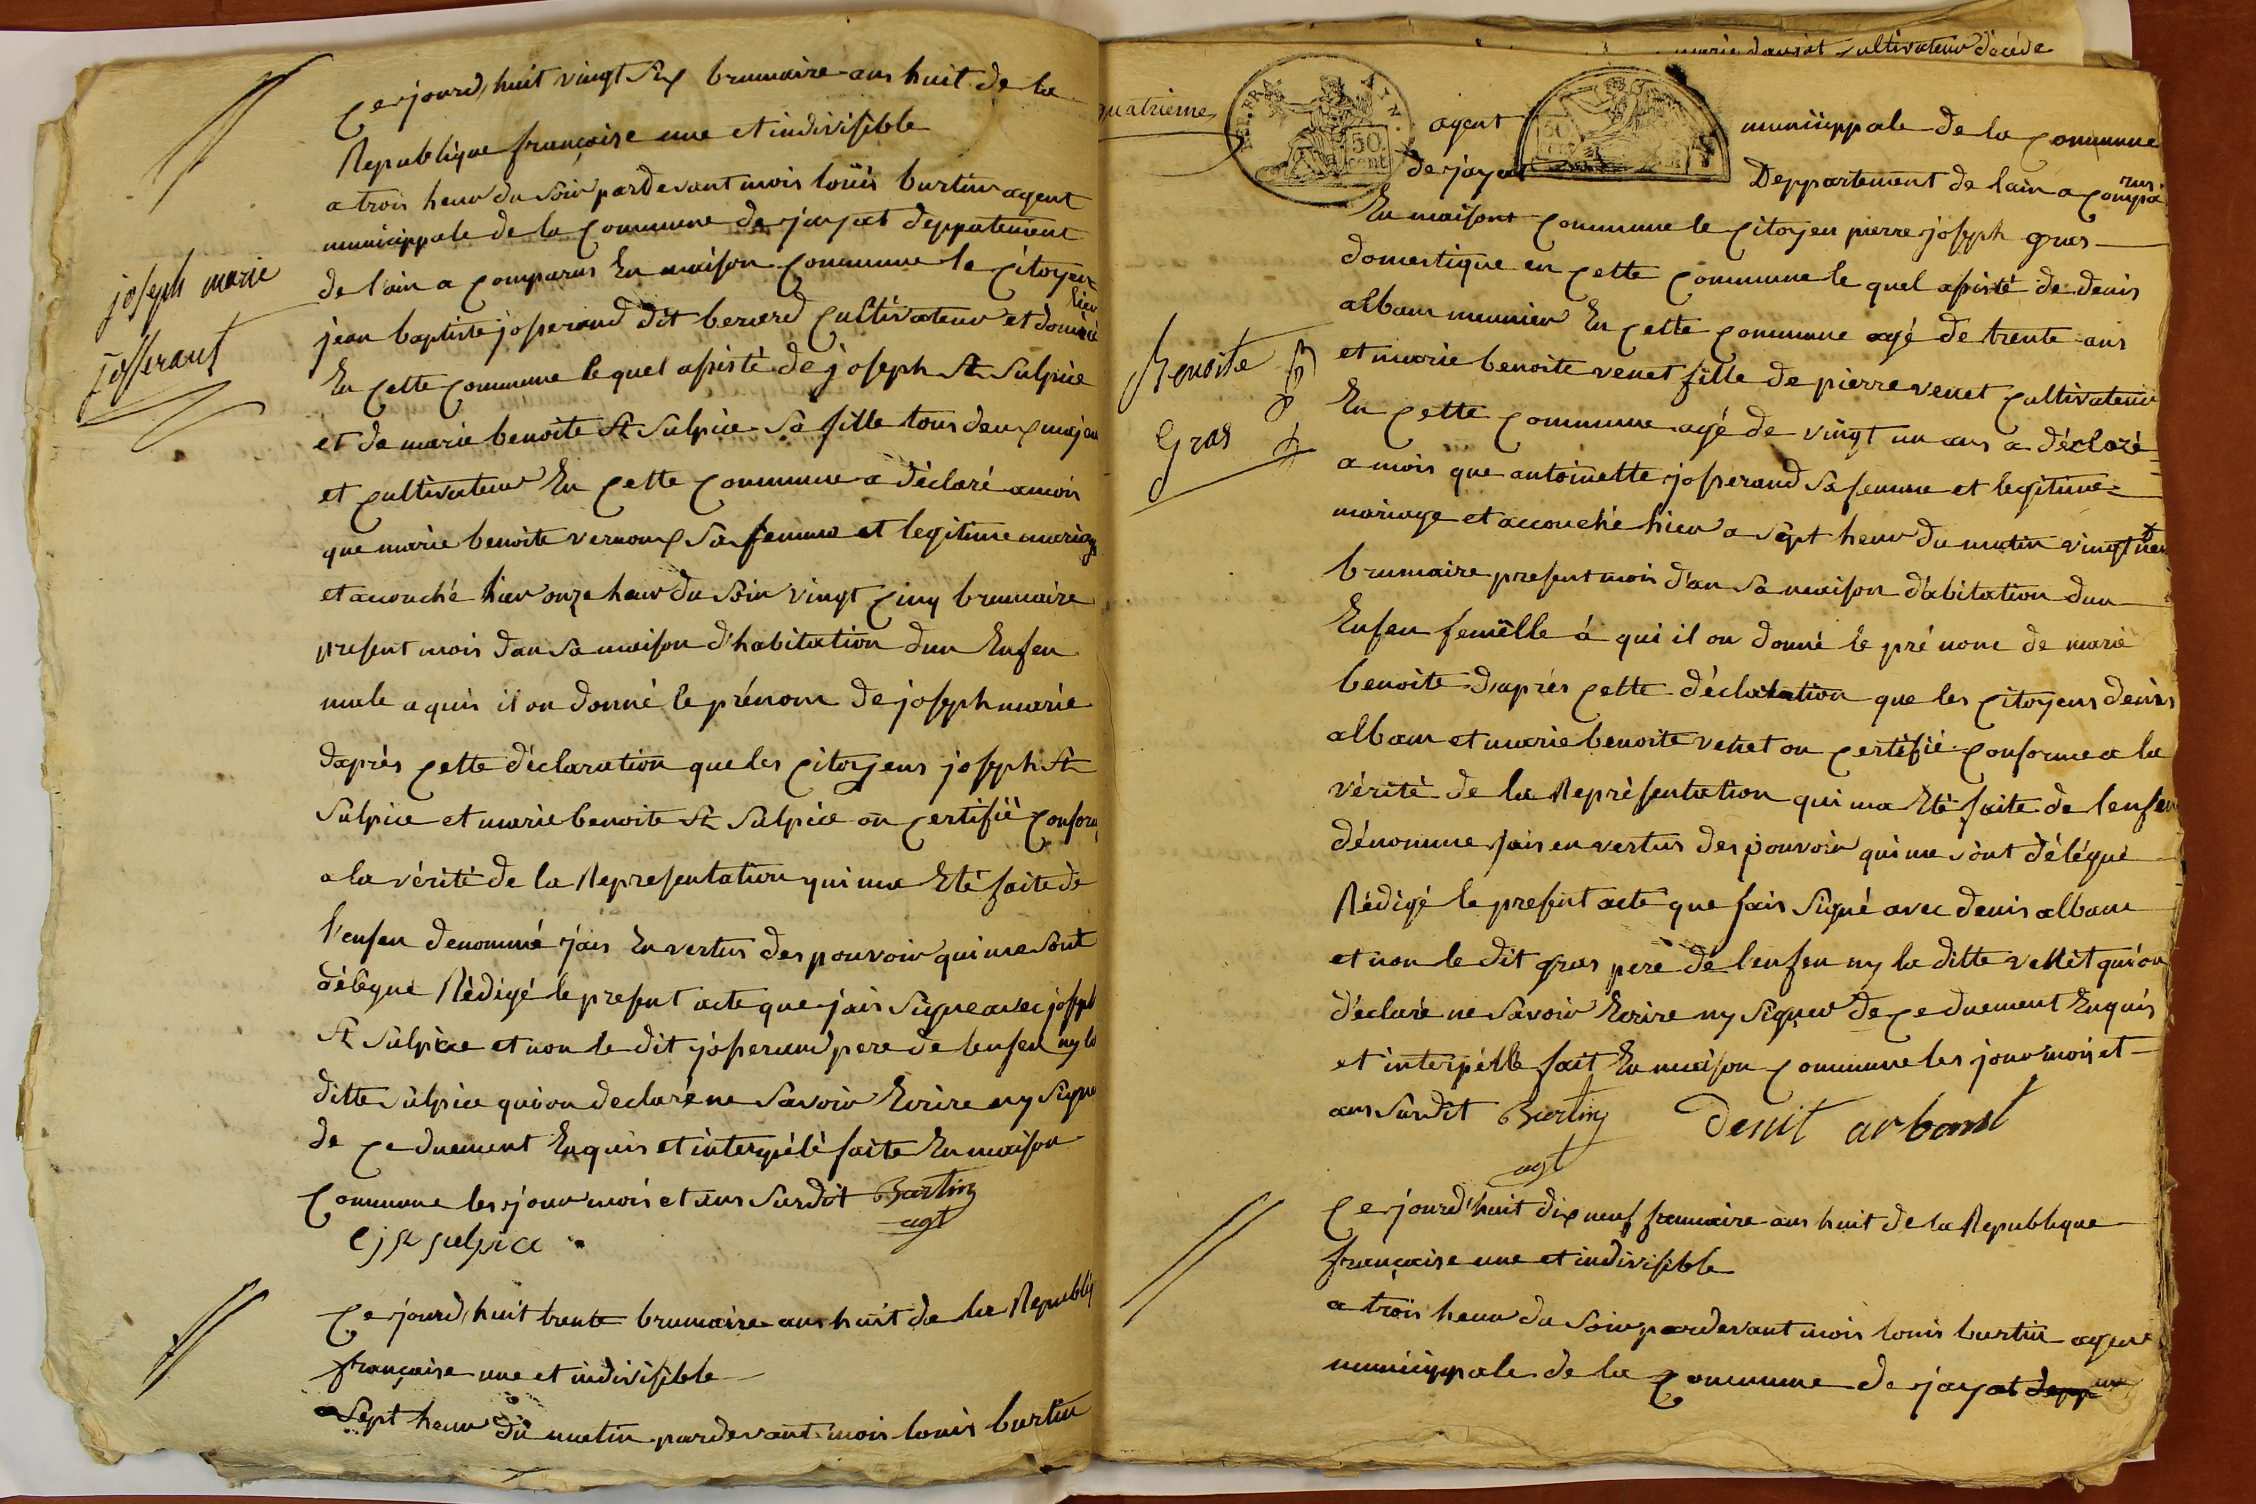 Cejourd,huit vingt Six brumaire ans huit de la
Republique française une et indivisible
a trois heur du Soir pardevant mois loüis burtin agent
municippale de la Commune de jayat deppartement
de l'ain a comparus En maison Commune le Citoyen
jean baptiste josserand dit berard Cultivateur et domicilier
En cette Commune lequel assisté de joseph St Sulpice
et de marie benoite St Sulpice Sa fille tous deux majeur
et Cultivateur En Cette Commune a déclaré amois
que marie benoite vernoux Sa femme et legitime mariage
et accouché hier onze heur du Soir vingt Cinq brumaire
present mois dan Sa maison d'habitation dun Enfen
male a quis il on donné le prénom de joseph marie
daprès Cette déclaration que les Citoyens joseph St
Sulpice et marie benoite St Sulpice on Certifié Conforme
a la vérité de la Representation qui ma Eté faite de
l'enfen denommé jais En vertus des pouvoir qui me sont
délégué Rédigé le present acte que jais Signe avec joseph
St Sulpice et non le dit josserand pere de lenfen ny la
ditte Sulpice qui on declaré ne Savoir Ecrire ny Signe
de Ce duement Enquis et interpélé faite En maison
Commune les jour mois et ans Surdit Burtin
agt
C j St sulpice
joseph marie
josserant
Cejourd,huit trente brumaire ans huit de la Republiq
française une et indivisible
a Sept heur du matin pardevant mois louis burtin
marie daujat Cultivateur décéde
quatrieme
REP. FRA. AYN.
50 cent
agent municippale de la Commune
de jayat Deppartement de lain a Comparus
En maison Commune le Citoyen pierre joseph gras
domestique en Cette Commune le quel assisté de denis
alban meunier En Cette Commune agé de trente ans
et marie benoite venet fille de pierre venet Cultivateur
En Cette Commune agé de vingt un ans a déclaré
a mois que antoinette josserand Sa femme et legitime
mariage et accouché hier a Sept heur du matin vingt neu
brumaire present mois dan Sa maison d'abitation dun
Enfen femélle à qui il on donné le pré nom de marie
benoite daprès Cette déclaration que les Citoyens denis
alban et marie benoite venet on Certifié Conforme a la
vérité de la Représentation qui ma Eté faite de lenfen
dénomme jais en vertus des pouvoir qui me sont délégué
Rédigé le present acte que jais Signé avec denis alban
et non le dit gras pere de l'enfen ny la ditte venet qui on
déclaré ne Savoir Ecrire ny Signer de Ce duement Enquis
et interpéllé fait En maison Commune les jour mois et
ans Surdit Burtin denit arbant
agt
Benoite
Gras
Cejourd'huit dix neuf frimaire ans huit de la Republique
française une et indivisible
a trois heur du Soir pardevant mois louis burtin agent
municippale de la Commune de jayat